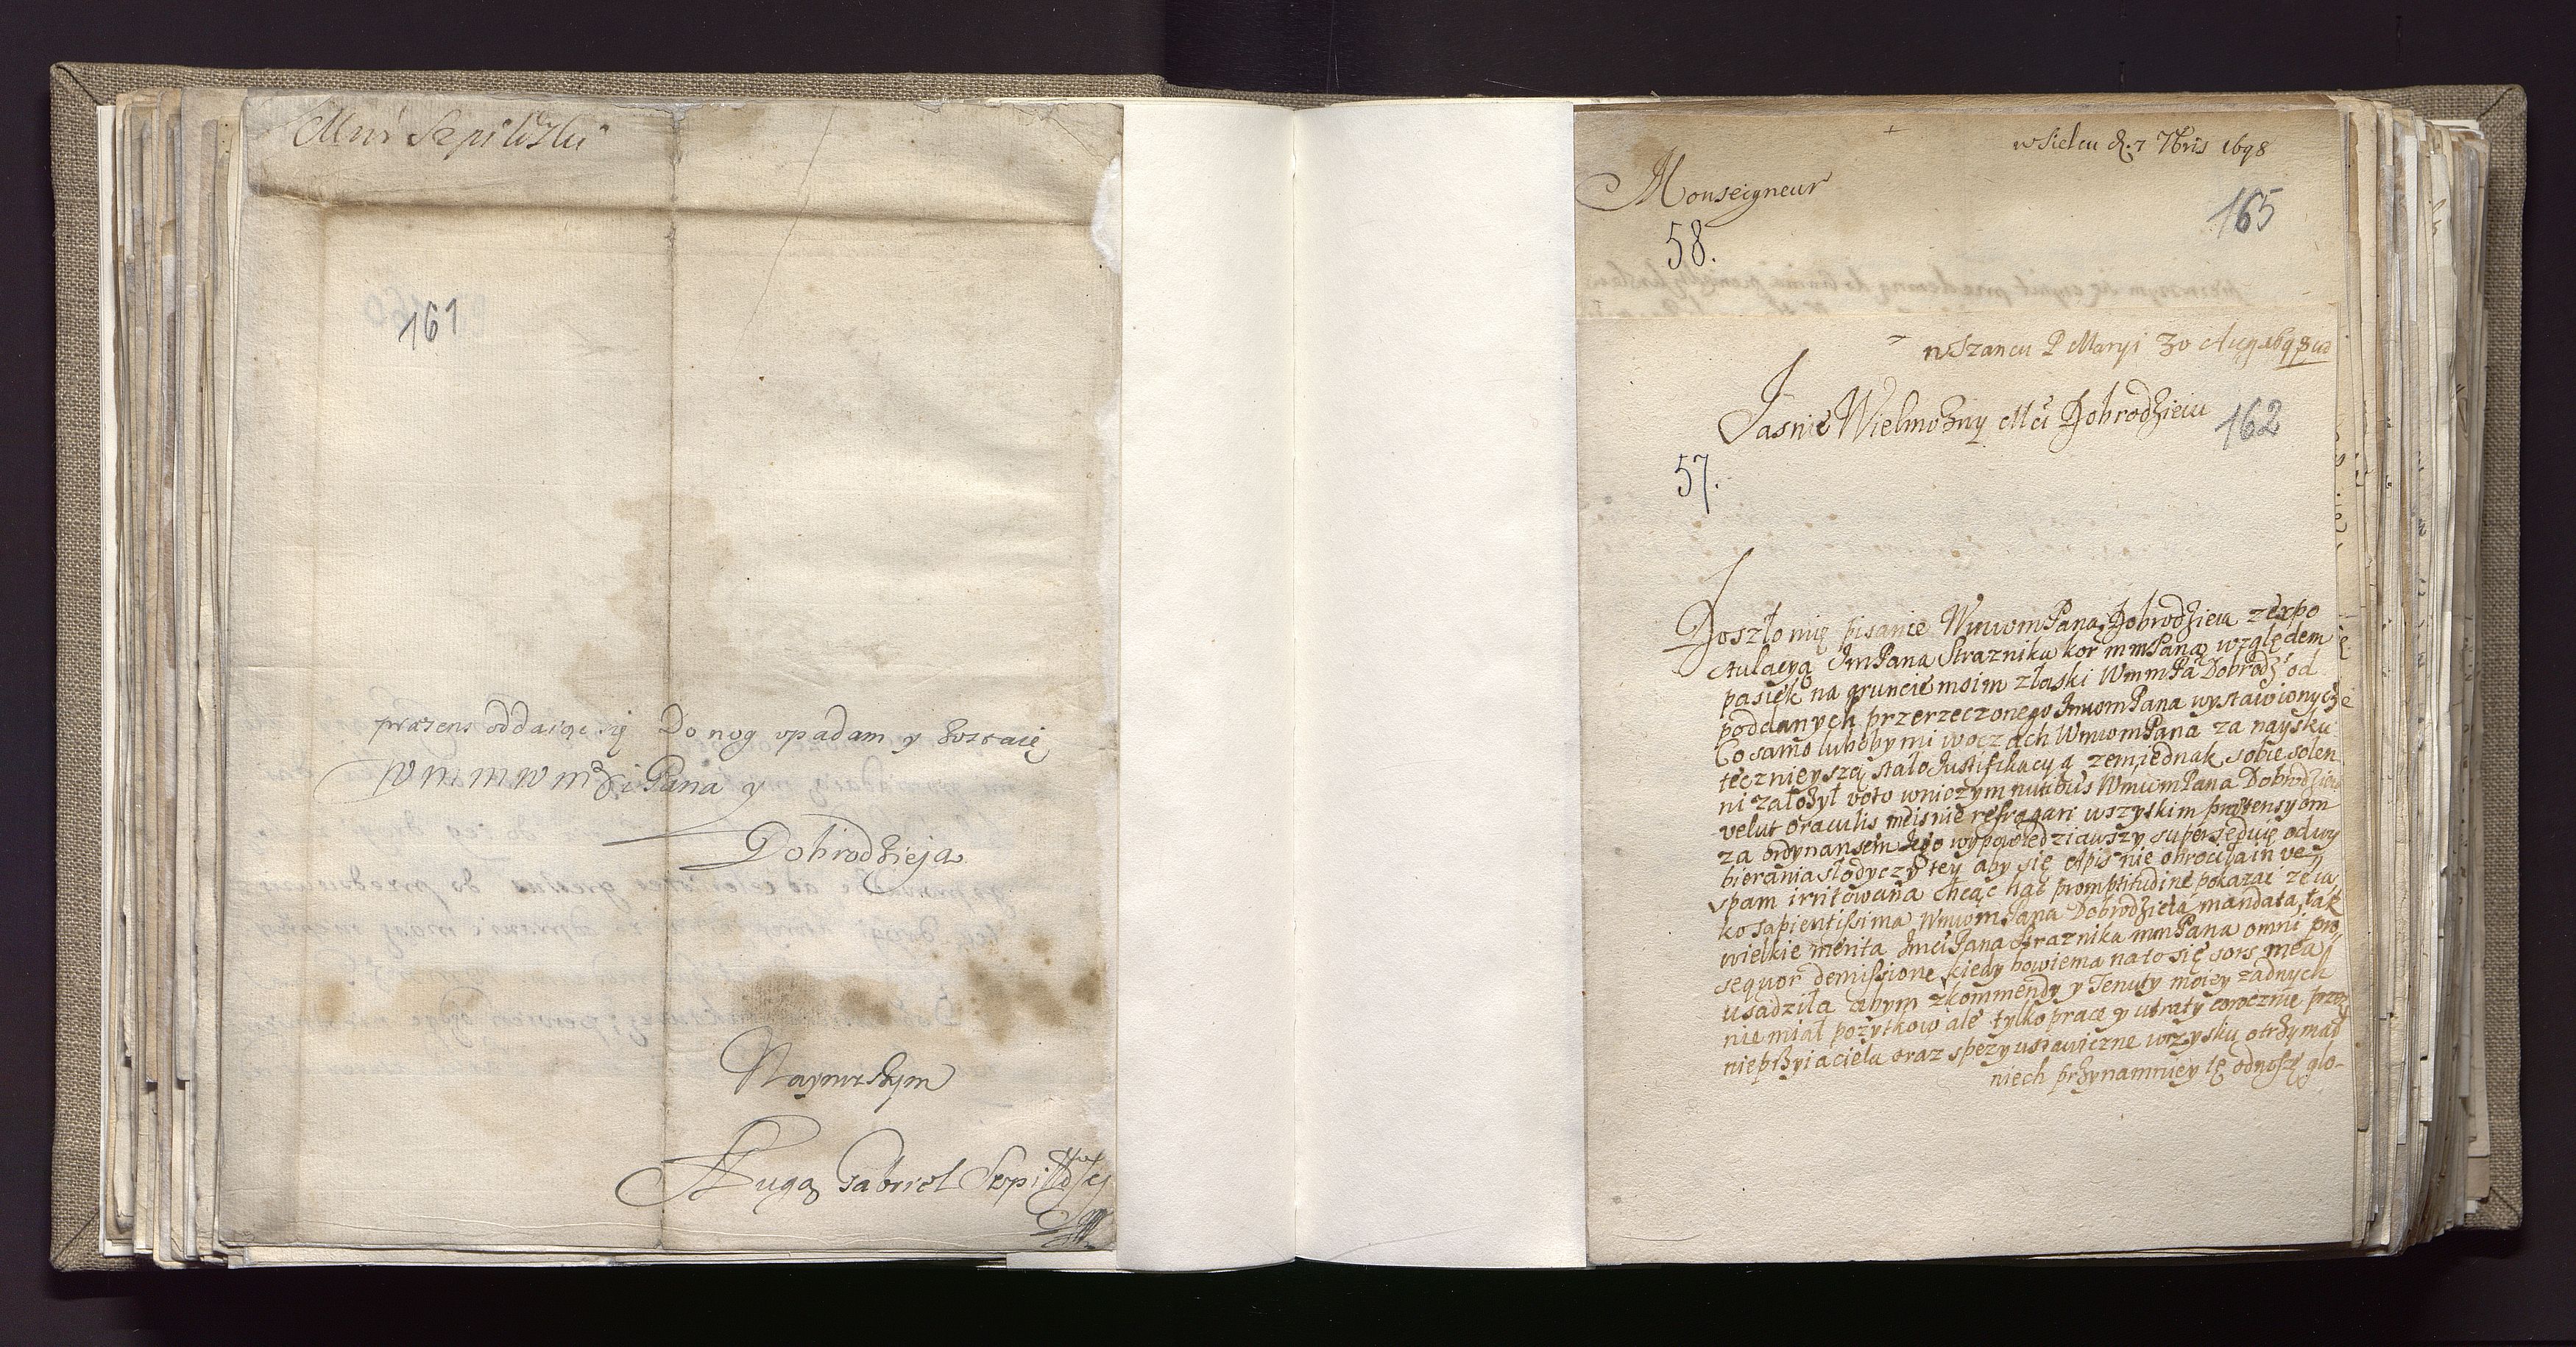 161
præsens oddaiąc się Do nog upadam y zostaię
WMMWMci Pana y
Dobrodzieja
Naynizszym
Sługą Gabriel
w Sielcu d. 7 7bris 1698
Monseigneur
165
58.
w Szancu P Maryi 30 Aug 1698
Jasnie Wielmozny Mci Dobrodzieiu
162
57.
Doszło mię pisanie WmwmPana Dobrodzieia z expo
stulacyą JmPana Straznika kor mmPana względem
pasiek na gruncie moim z łaski WmmPa Dobrodz od
poddanych przerzeczonego JmwmPana wystawionych
Co samo luboby mi w oczach WmwmPana za naysku
tecznieyszą stało Justifikacyą zem iednak sobie solen
ni załozył voto w niczym nutibus WmwmPana Dobrodzieia
velut oraculis meis nie refragari wszyskim prætensyom
za ordynansem Jego wypowiedziawszy supersęduię od wy
bierania słodyczy tey aby się Apis nie obrociła in ve
spam irritowana chcąc hac promptitudine pokazac ze ia
ko sapientissima WmwmPana Dobrodzieia mandata, tak
wielkie merita JmciPana Straznika mmPana omni pro
sequor demissione, kiedy bowiem na to się sors mea
usadziła abym z kommendy y Tenuty moiey zadnych
nie miał pozytkow ale tylko prace y utraty corocznie przez
nieprzyiaciela oraz spezy ustawiczne w zysku otrzymał
niech przynamniey tę odnoszę glo-